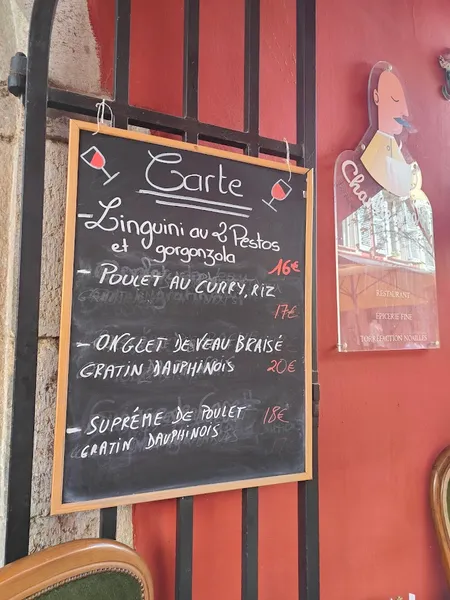 Carte
- Linguini au 2 Pestos
et gorgonzola
16€
- POULET AU CURRY, RIZ
17€
- ONGLET DE VEAU BRAISÉ
GRATIN DAUPHINOIS 20€
- SUPRÊME DE POULET 18€
GRATIN DAUPHINOIS
RESTAURANT
ÉPICERIE FINE